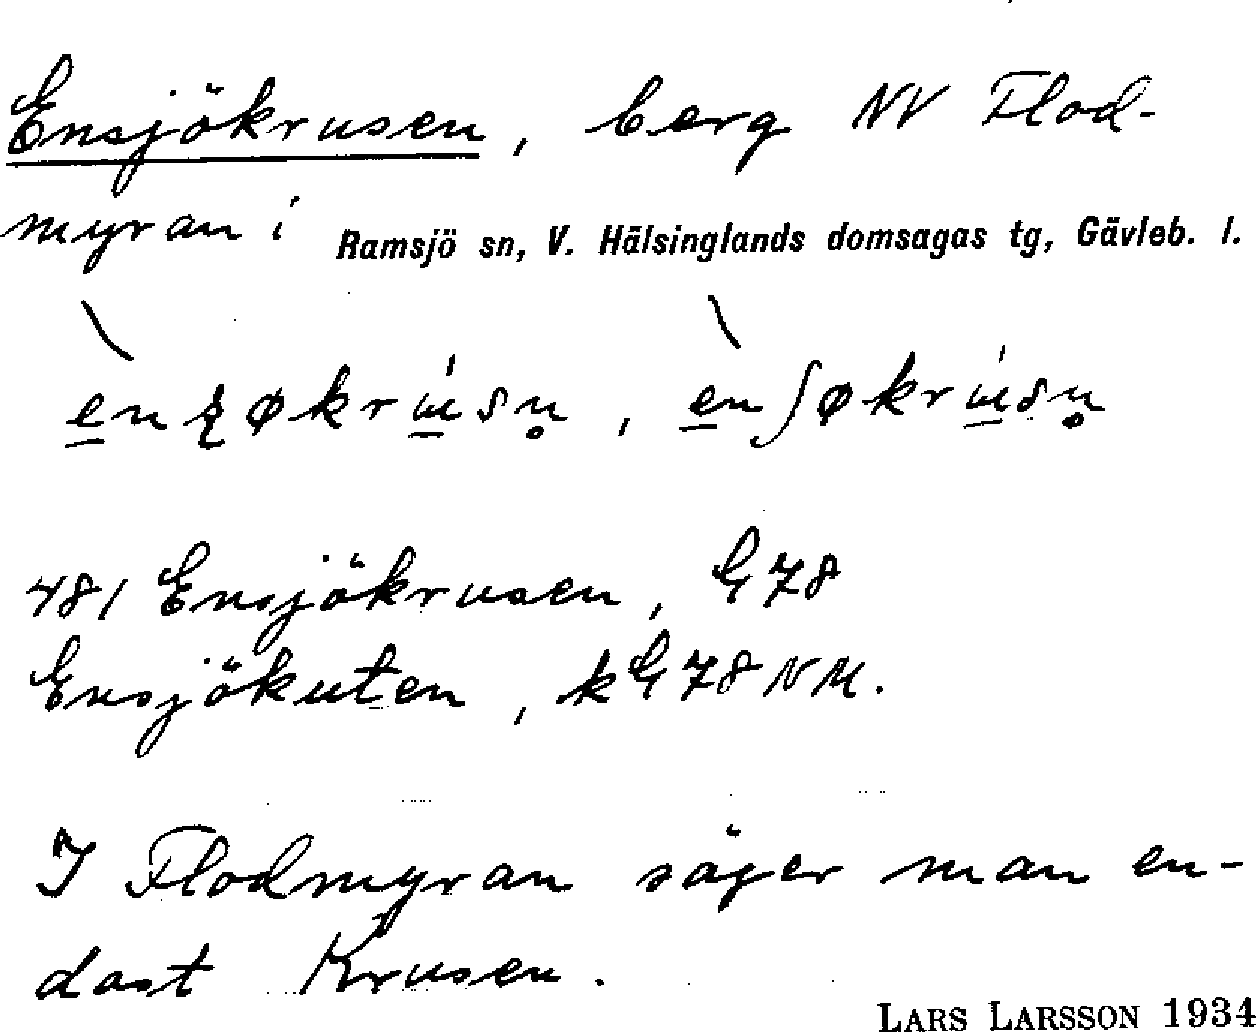 Ensjökrusen, berg NV Flod-
myran i Ramsjö sn, V. Hälsinglands domsagas tg, Gävleb. l.
481 Ensjökrusen, G 78
Ensjökuten, k G 78 NM.
I Flodmyran säger man en-
dast Krusen.
LARS LARSSON 1934